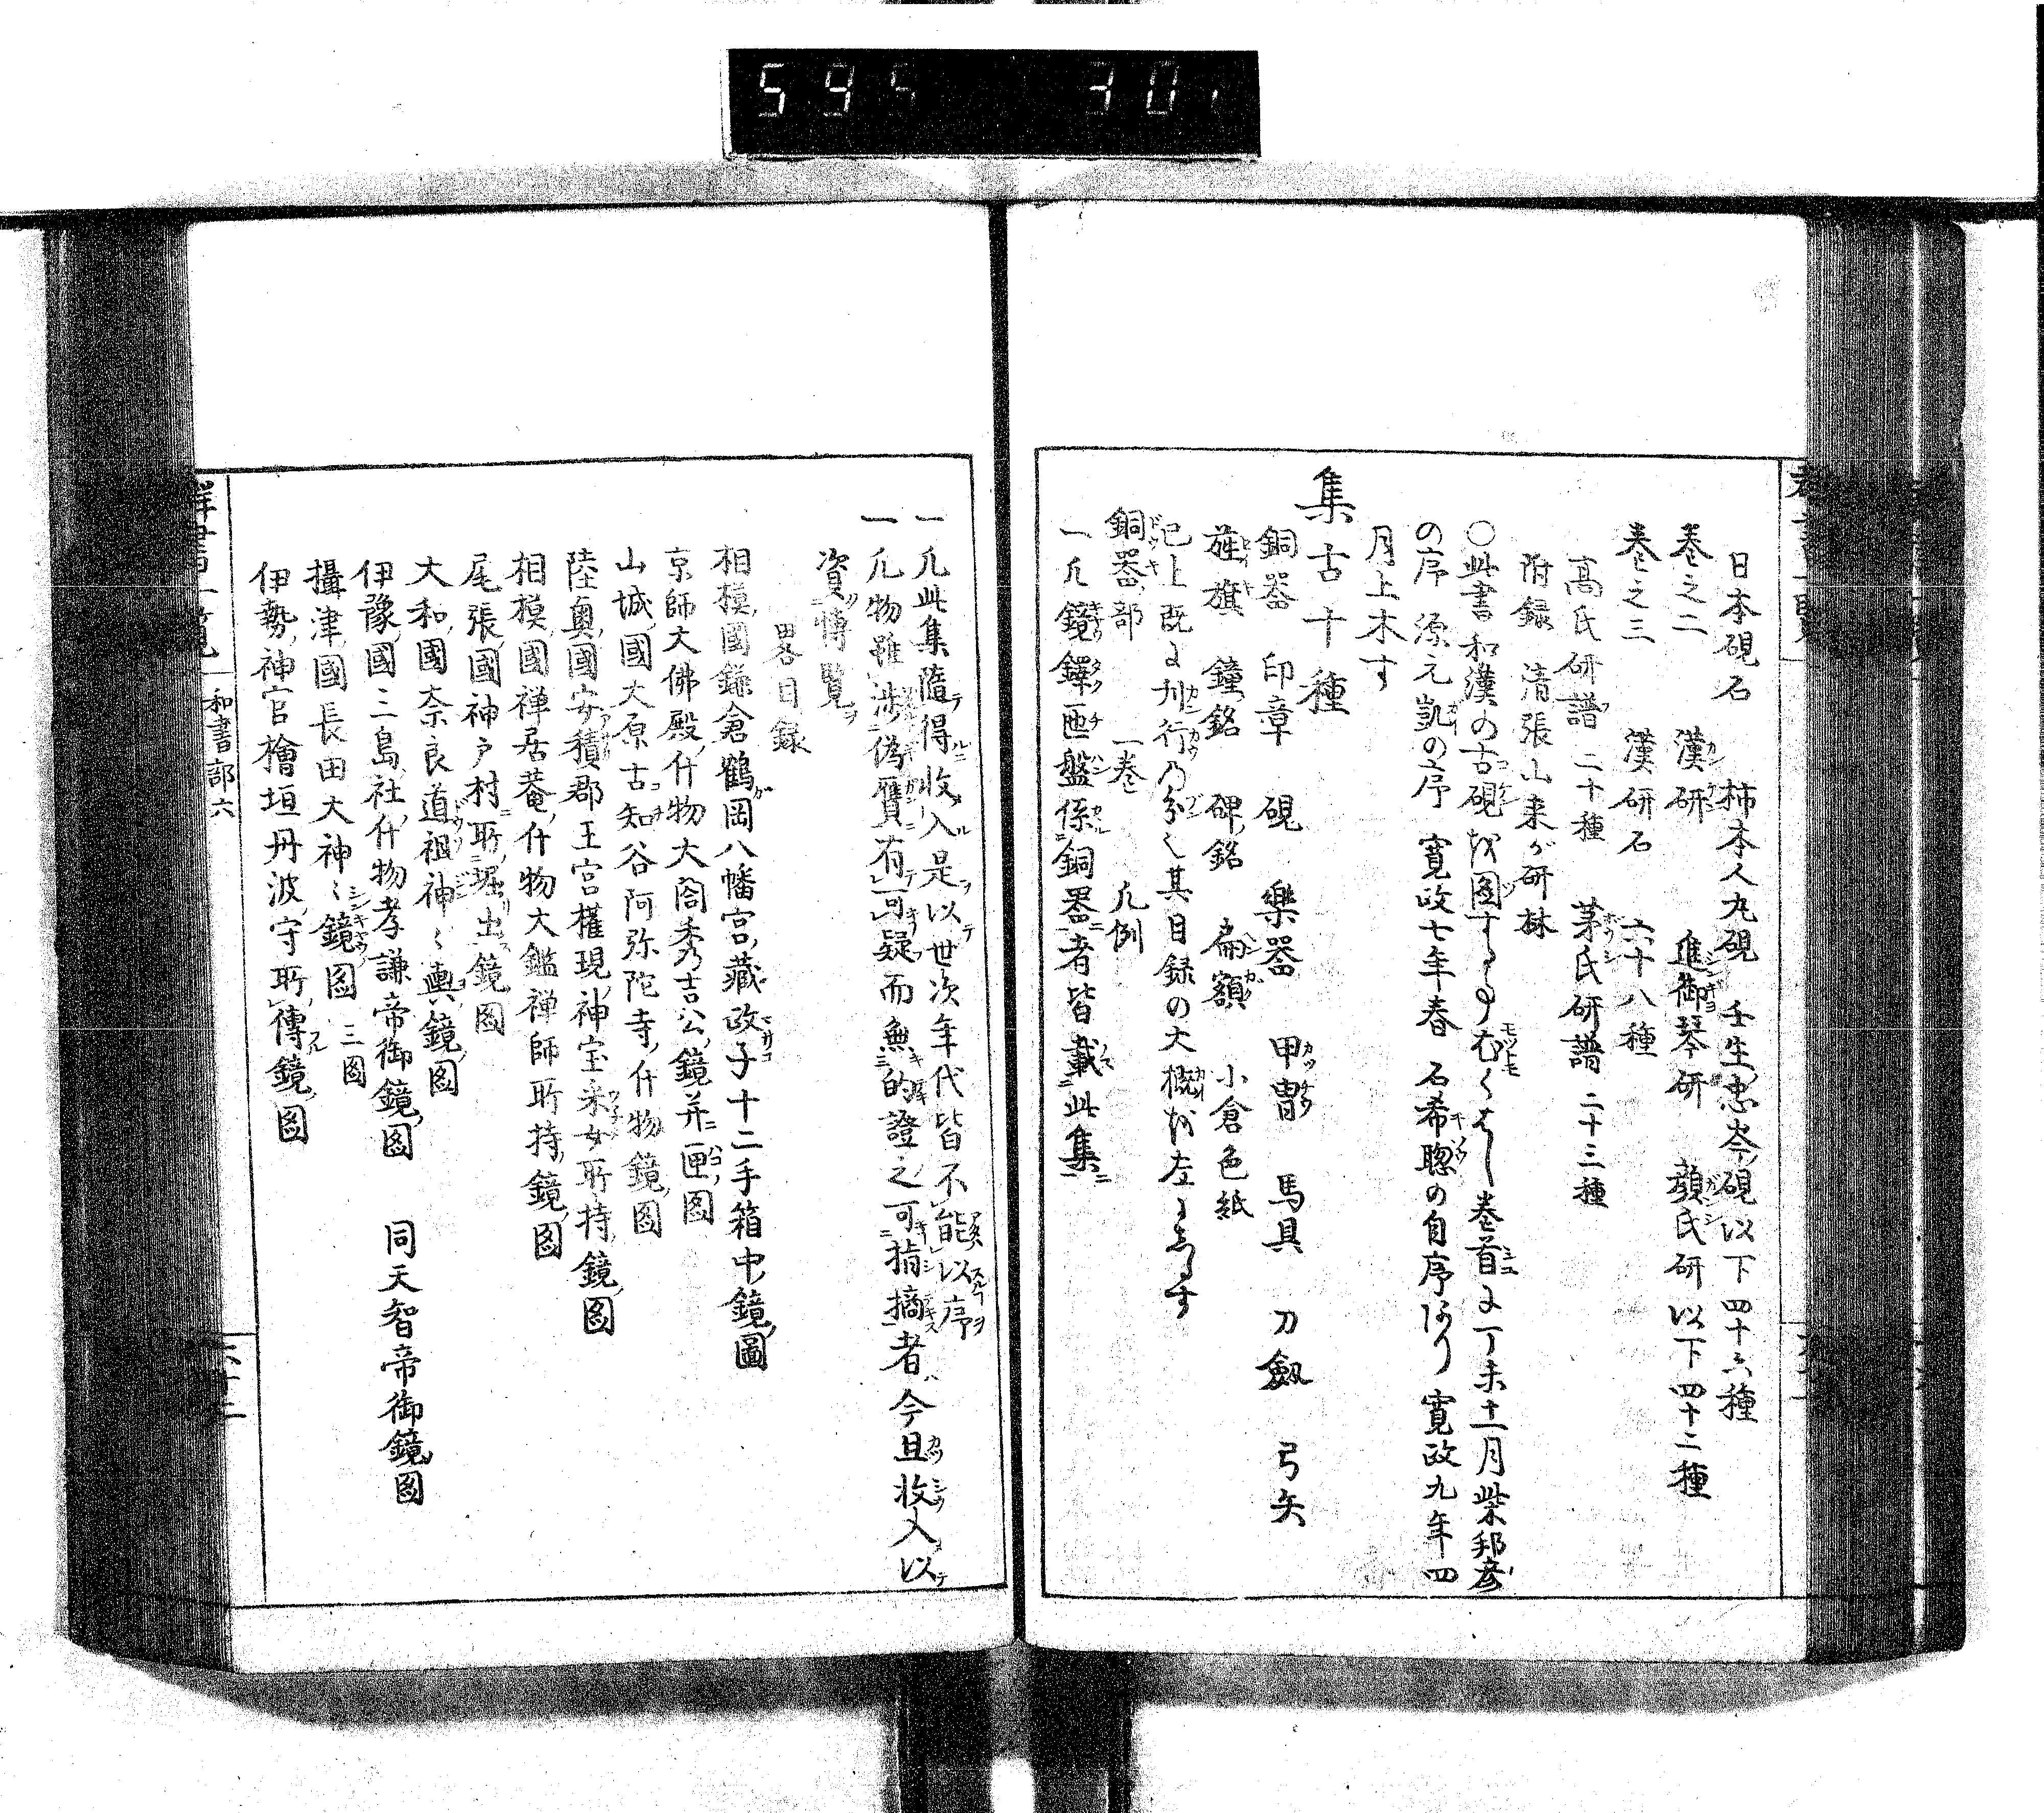 595 30
日本硯石 柿本人丸硯 壬生忠岑硯以下四十六種
巻之二 漢研 進御琴研 顔氏研以下四十二種
巻之三 漢研石 六十八種
高氏研譜二十種 茅氏研譜二十三種
附録 清張山来が研林
〇此書和漢の古硯を図する事尤くはし巻首に丁未十一月柴邦彦
の序 源元凱の序 寛政七年春 石希聡の自序あり 寛政九年四
月上木す
集古十種
銅器 印章 硯 樂器 甲冑 馬具 刀劔 弓矢
旌旗 鐘銘 碑銘 扁額 小倉色紙
已上既に刋行乃分也其目録の大概を左にしるす
銅器部 一巻 凡例
一凡鏡鐸匜盤係銅器者皆載此集
一凡此集隨得收入是以世次年代皆不能以序
一凡物雖渉偽贋有可疑而無的證之可指摘者今且收入以
資博覧
畧目録
相模國鎌倉鶴岡八幡宮藏政子十二手箱中鏡圖
京師大佛殿什物大閤秀吉公鏡并匣図
山城國大原古知谷阿弥陀寺什物鏡図
陸奥國安積郡王宮權現神宝采女所持鏡図
相模國禅居菴什物大鑑禅師所持鏡図
尾張國神戸村所堀出鏡図
大和國奈良道祖神〻輿鏡図
伊豫國三島社什物孝謙帝御鏡図 同天智帝御鏡図
攝津國長田大神〻鏡図 三図
伊勢神官檜垣丹波守所傳鏡図
群書一覧 和書部六 六十二